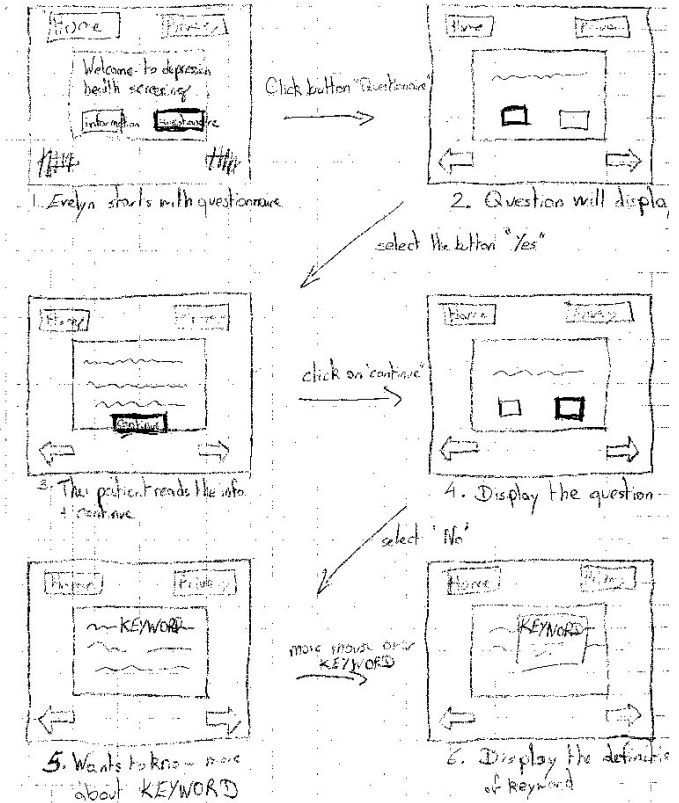 Home Privacy
Welcome to depression
health screening
information Questionnaire
1. Evelyn starts with questionnaire
Click button "Questionnaire"
Home
2. Question will displa
select the button "Yes"
Home
Continue
3. The patient reads the info
+ continue
click on "continue"
Home Privacy
4. Display the question
select "No"
Home Privacy
KEYWORD
5. Wants to know more
about KEYWORD
move mouse over
KEYWORD
Home Privacy
KEYWORD
6. Display the definitio
of keyword